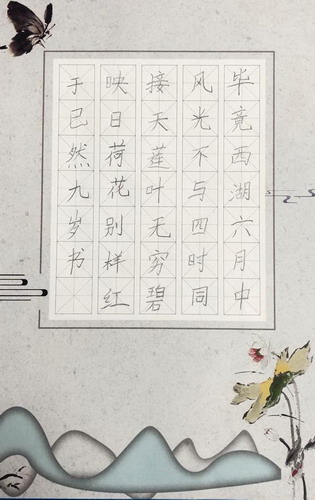 毕竟西湖六月中
风光不与四时同
接天莲叶无穷碧
映日荷花别样红
于已然九岁书